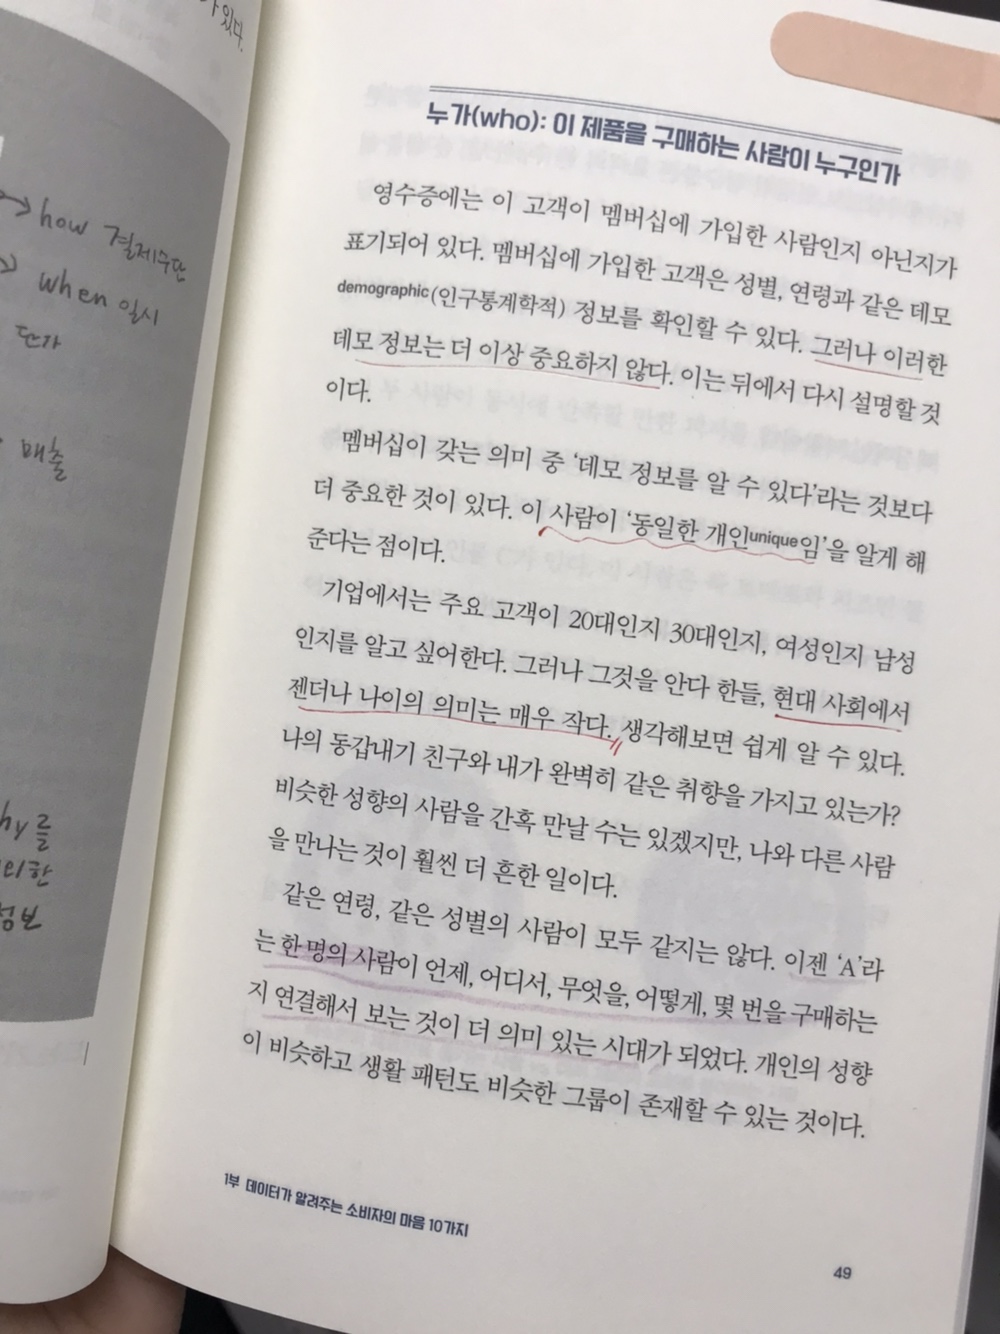 가 있다.
how 결제수단
when 일시
단가
매출
hy를
의한
정보
누가(who): 이 제품을 구매하는 사람이 누구인가
영수증에는 이 고객이 멤버십에 가입한 사람인지 아닌지가
표기되어 있다. 멤버십에 가입한 고객은 성별, 연령과 같은 데모
demographic(인구통계학적) 정보를 확인할 수 있다. 그러나 이러한
데모 정보는 더 이상 중요하지 않다. 이는 뒤에서 다시 설명할 것
이다.
멤버십이 갖는 의미 중 ‘데모 정보를 알 수 있다’라는 것보다
더 중요한 것이 있다. 이 사람이 ‘동일한 개인unique임’을 알게 해
준다는 점이다.
기업에서는 주요 고객이 20대인지 30대인지, 여성인지 남성
인지를 알고 싶어한다. 그러나 그것을 안다 한들, 현대 사회에서
젠더나 나이의 의미는 매우 작다. 생각해보면 쉽게 알 수 있다.
나의 동갑내기 친구와 내가 완벽히 같은 취향을 가지고 있는가?
비슷한 성향의 사람을 간혹 만날 수는 있겠지만, 나와 다른 사람
을 만나는 것이 훨씬 더 흔한 일이다.
같은 연령, 같은 성별의 사람이 모두 같지는 않다. 이젠 ‘A’라
는 한 명의 사람이 언제, 어디서, 무엇을, 어떻게, 몇 번을 구매하는
지 연결해서 보는 것이 더 의미 있는 시대가 되었다. 개인의 성향
이 비슷하고 생활 패턴도 비슷한 그룹이 존재할 수 있는 것이다.
1부 데이터가 알려주는 소비자의 마음 10가지
49